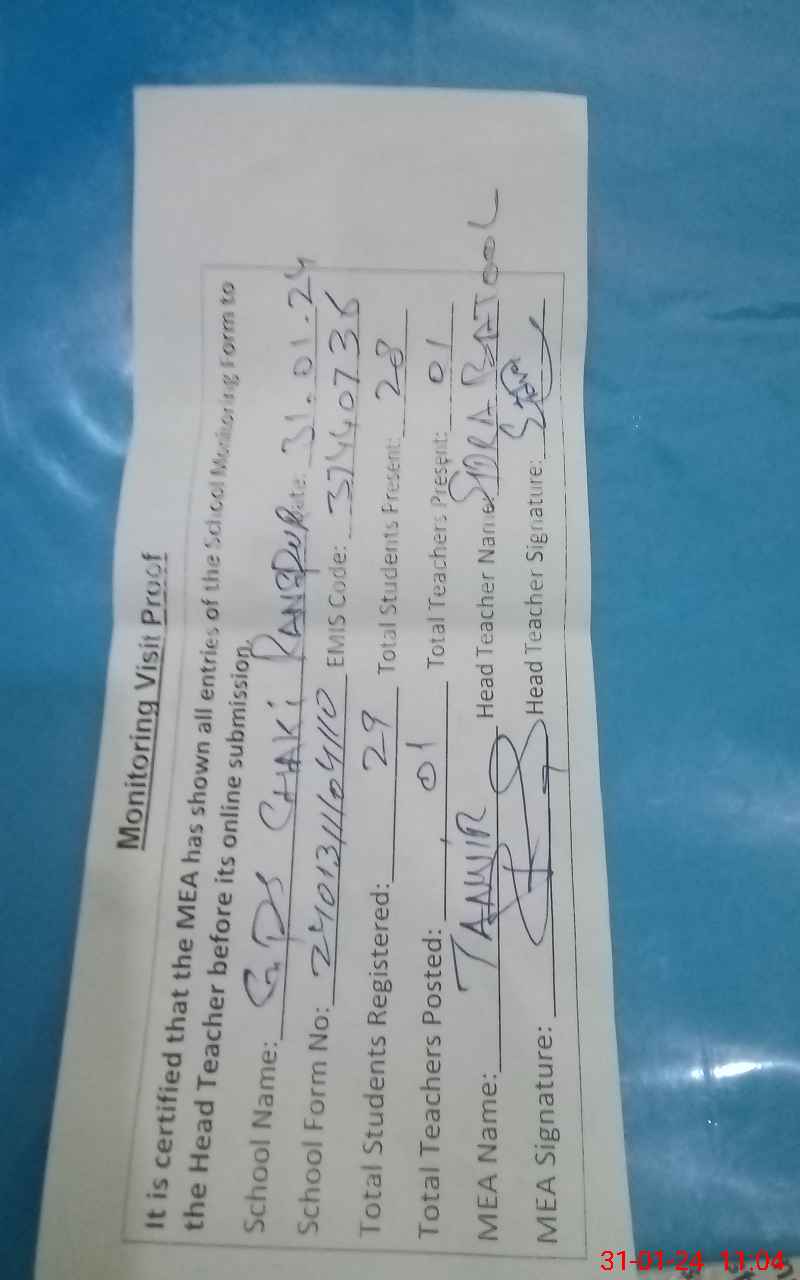 Monitoring Visit Proof
It is certified that the MEA has shown all entries of the School Monitoring Form to
the Head Teacher before its online submission.
School Name: GPS CHAKI RANGPUR Date: 31.01.24
School Form No: EMIS Code: 37440736
Total Students Registered: 29 Total Students Present: 28
Total Teachers Posted: 01 Total Teachers Present: 01
MEA Name: TANWIR Head Teacher Name: SIDRA BATOOL
MEA Signature: Head Teacher Signature:
31-01-24 11:04